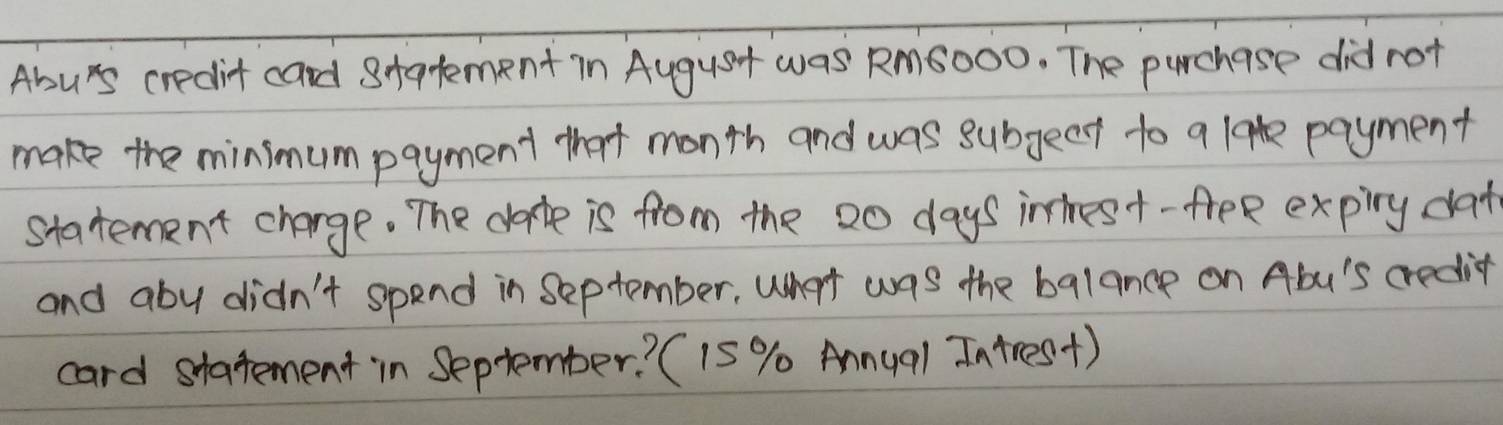 Abu's credit card statement in August was RM6000. The purchase did not
make the minimum payment that month and was subject to a late payment
statement charge. The date is from the 20 days intrest-free expiry dat
and abu didn't spend in September. What was the balance on Abu's credit
card statement in September? (15% Annual Intrest)